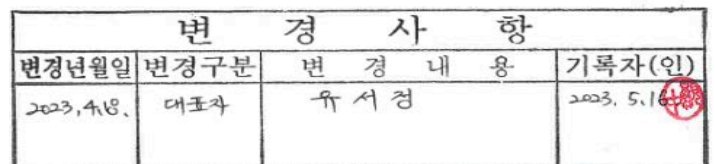 변경사항
변경년월일 변경구분 변경내용 기록자(인)
2023, 4.18. 대표자 유서정 2023. 5.16